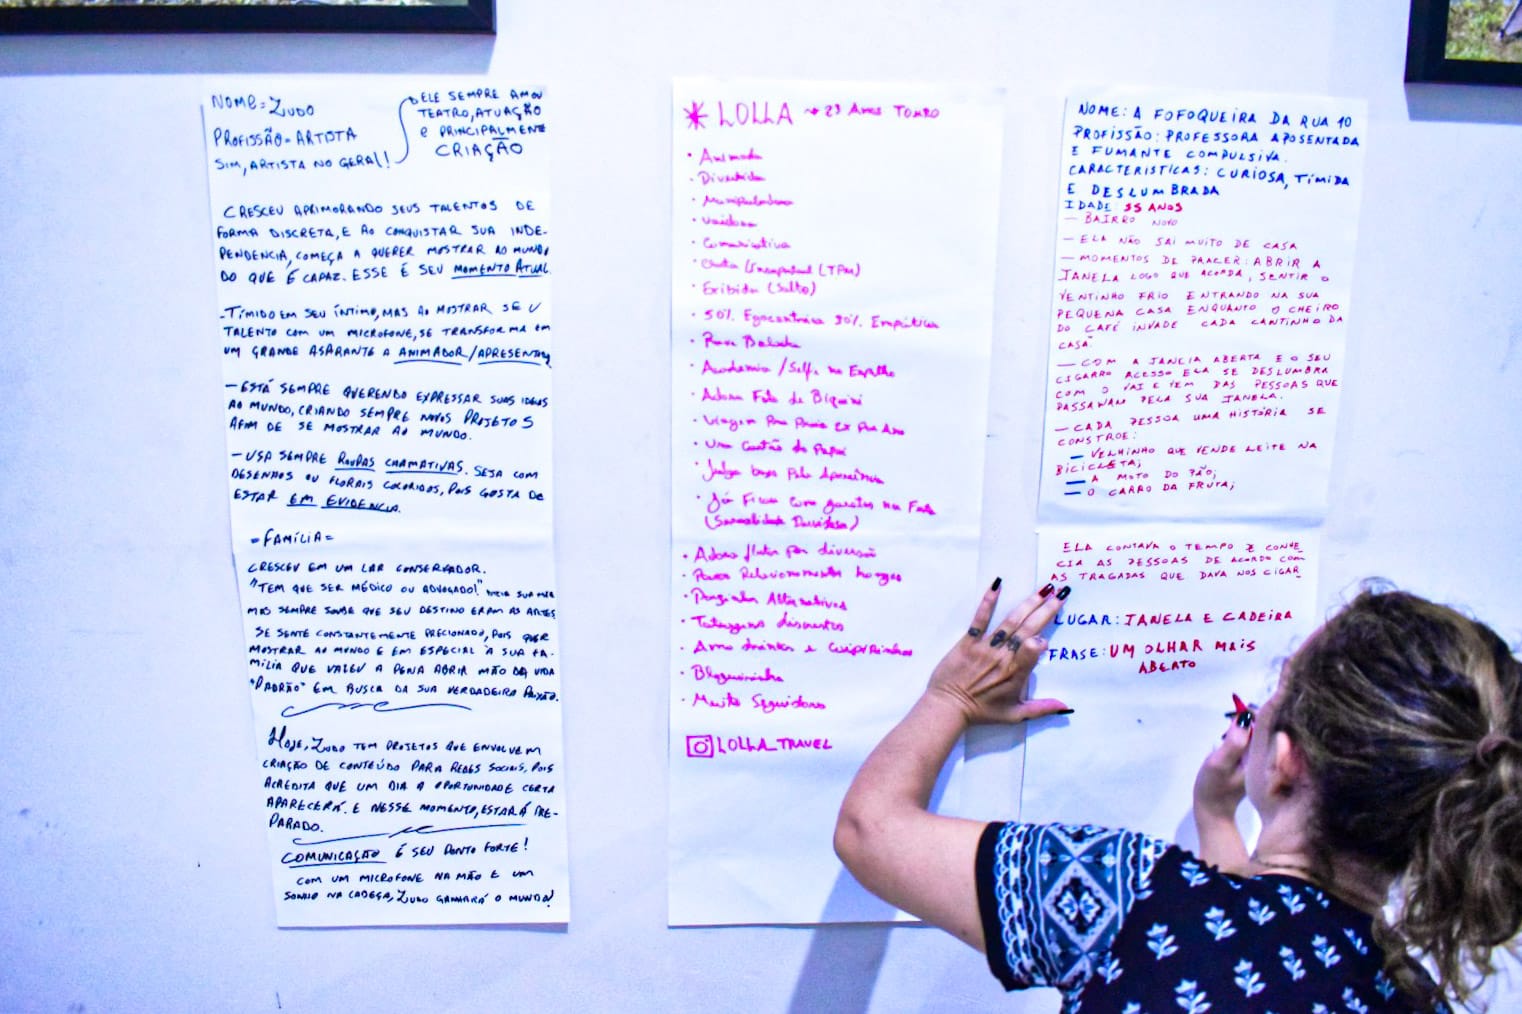 NOME = ZUDO
PROFISSÃO = ARTISTA
SIM, ARTISTA NO GERAL!
ELE SEMPRE AMOU
TEATRO, ATUAÇÃO
E PRINCIPALMENTE
CRIAÇÃO
CRESCEU APRIMORANDO SEUS TALENTOS DE
FORMA DISCRETA, E AO CONQUISTAR SUA INDE-
PENDENCIA, COMEÇA A QUERER MOSTRAR AO MUNDO
DO QUE É CAPAZ. ESSE É SEU MOMENTO ATUAL.
- TÍMIDO EM SEU ÍNTIMO, MAS AO MOSTRAR SEU
TALENTO COM UM MICROFONE, SE TRANSFORMA EM
UM GRANDE ASPIRANTE A ANIMADOR/APRESENTAD
- ESTÁ SEMPRE QUERENDO EXPRESSAR SUAS IDEIAS
AO MUNDO, CRIANDO SEMPRE NOVOS PROJETOS
AFIM DE SE MOSTRAR AO MUNDO.
- USA SEMPRE ROUPAS CHAMATIVAS. SEJA COM
DESENHOS OU FLORAIS COLORIDOS, POIS GOSTA DE
ESTAR EM EVIDENCIA.
= FAMÍLIA =
CRESCEU EM UM LAR CONSERVADOR.
"TEM QUE SER MÉDICO OU ADVOGADO!" DIZIA SUA MÃE
MAS SEMPRE SOUBE QUE SEU DESTINO ERAM AS ARTES
SE SENTE CONSTANTEMENTE PRECIONADO, POIS QUER
MOSTRAR AO MUNDO E EM ESPECIAL À SUA FA-
MÍLIA QUE VALEU A PENA ABRIR MÃO DA VIDA
"PADRÃO" EM BUSCA DA SUA VERDADEIRA PAIXÃO.
HOJE, ZUDO TEM PROJETOS QUE ENVOLVEM
CRIAÇÃO DE CONTEÚDO PARA REDES SOCIAIS, POIS
ACREDITA QUE UM DIA A OPORTUNIDADE CERTA
APARECERÁ. E NESSE MOMENTO, ESTARÁ PRE-
PARADO.
COMUNICAÇÃO É SEU PONTO FORTE!
COM UM MICROFONE NA MÃO E UM
SONHO NA CABEÇA, ZUDO GANHARÁ O MUNDO!
LOLLA → 23 Anos TOURO
• Animada
• Divertida
• Manipuladora
• Vaidosa
• Comunicativa
• Chata Insuportável (TPM)
• Exibida (Salto)
• 50% Egocentrica 50% Empática
• Rave Balada
• Academia / Selfie no Espelho
• Adora Foto de Biquini
• Viagem Pra Praia 2x Por Ano
• Usa Cartão do Papai
• Julga boys Pela Aparência
• Já Ficou com garotas na Festa
(Sexualidade Duvidosa)
• Adora flertar por diversão
• Poucos Relacionamentos longos
• Tatuagens discretas
• Ama drinkes e
• Blogueirinha
• Muito Seguidores
LOLLA_TRAVEL
NOME: A FOFOQUEIRA DA RUA 10
PROFISSÃO: PROFESSORA APOSENTADA
E FUMANTE COMPULSIVA.
CARACTERISTICAS: CURIOSA, TÍMIDA
E DESLUMBRADA
IDADE: 55 ANOS
- BAIRRO NOVO
- ELA NÃO SAI MUITO DE CASA
- MOMENTOS DE PRAZER: ABRIR A
JANELA LOGO QUE ACORDA, SENTIR O
VENTINHO FRIO ENTRANDO NA SUA
PEQUENA CASA ENQUANTO O CHEIRO
DO CAFÉ INVADE CADA CANTINHO DA
CASA.
- COM A JANELA ABERTA E O SEU
CIGARRO ACESO ELA SE DESLUMBRA
COM O VAI E VEM DAS PESSOAS QUE
PASSAVAM PELA SUA JANELA.
- CADA PESSOA UMA HISTÓRIA SE
CONSTROE:
- VELHINHO QUE VENDE LEITE NA
BICICLETA;
- A MOTO DO PÃO;
- O CARRO DA FRUTA;
ELA CONTAVA O TEMPO E CONHE-
CIA AS PESSOAS DE ACORDO COM
AS TRAGADAS QUE DAVA NOS CIGAR
LUGAR: JANELA E CADEIRA
FRASE: UM OLHAR MAIS
ABERTO